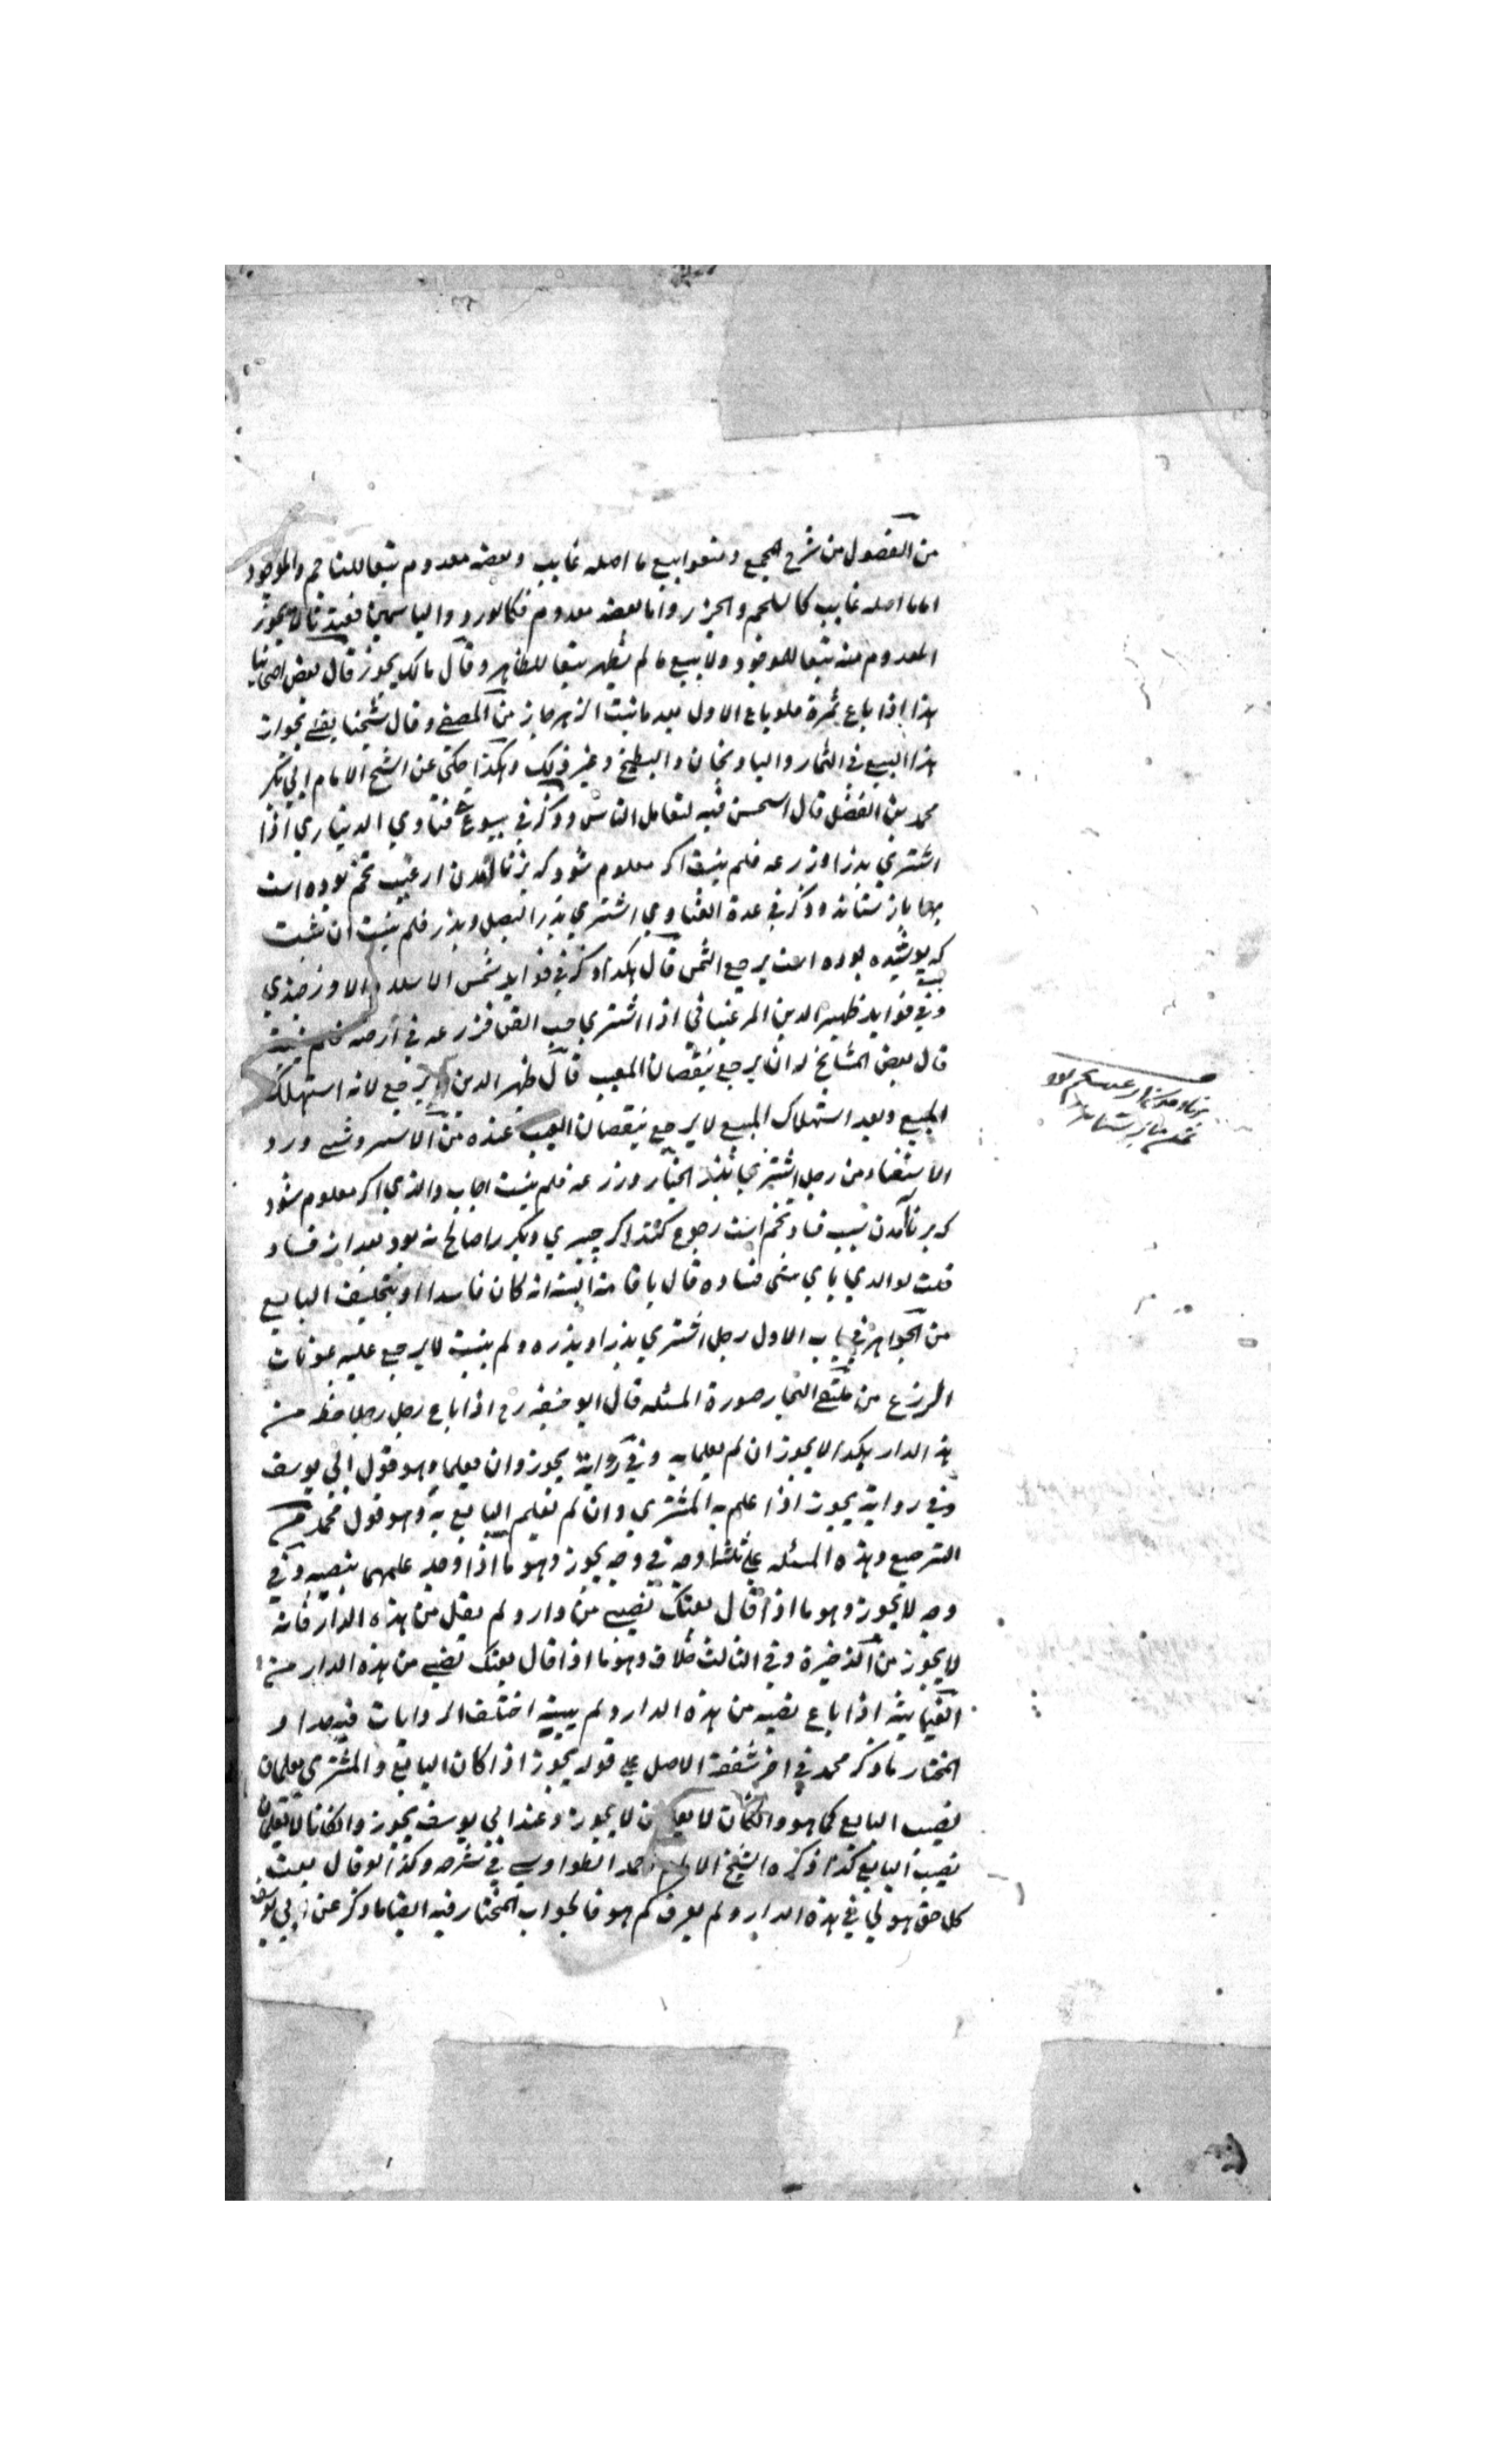 من الفصول من شرح المجمع ومنعوا بيع ما اصله غايب وبعضه معدوم تبعا للناجم والموجود
اما ما اصله غايب كالسلجم والجزر واما بعضه معدوم فكالورد والياسمين فعندنا لا يجوز
المعدوم منه تبعا للموجود ولا بيع ما لم يظهر تبعا للظاهر وقال مالك يجوز قال بعض اصحابنا
هذا اذا باع ثمرة فلو باع الاول بعد ما نبت الزهر جاز من المصفى وقال شيخنا يفتى بجواز
هذا البيع في الثمار والباذنجان والبطيخ وغير ذلك وهكذا حكي عن الشيخ الامام ابي بكر
محمد بن الفضل قال استحسن فيه لتعامل الناس وذكر في بيوع فتاوي الديناري اذا
اشتري بذرا وزرعه فلم ينبت اكر معلوم شود كه برناآمدن از عيب تخم بوده است
بها باز ستاند وذكر في عدة الفتاوي اشتري بذر البصل وبذر فلم ينبت ان ثبت
كه پوشيده بوده است يرجع الثمن قال هكذا ذكر في فوايد شمس الاسلام الاوزجندي
وفي فوايد ظهير الدين المرغيناني اذا اشتري حب القطن فزرعه في ارضه فلم ينبت
قال بعض المشايخ له ان يرجع بنقصان العيب قال ظهير الدين لا يرجع لانه استهلك
المبيع وبعد استهلاك المبيع لا يرجع بنقصان العيب عنده من الاسروشني ورد
الاستفتاء من رجل اشتري بذر الخيار وزرعه فلم ينبت اجاب والدي اكر معلوم شود
كه برناآمدن بسبب فساد تخم است رجوع كند اكر چيزي ديكر را صالح نه بود بعد از فساد
قلت لوالدي باي شي فساده قال باقامة البينة انه كان فاسدا او بتحليف البايع
من الجواهر في باب الاول رجل اشتري بذرا وبذره ولم ينبت لا يرجع عليه بمونات
الزرع من ملتقى البحار صورة المسئله قال ابو حنيفة رح اذا باع رجل رجلا حظه من
هذه الدار بكذا لا يجوز ان لم يعلما به وفي رواية يجوز وان لم يعلما وهو قول ابي يوسف
وفي رواية يجوز اذا علم به المشتري وان لم يعلم البايع به وهو قول محمد من
الترصيع وهذه المسئله على ثلثة اوجه في وجه يجوز وهو ما اذا وجد علمهما بنصيبه وفي
وجه لا يجوز وهو ما اذا قال بعتك نصيبي من دار ولم يقل من هذه الدار فانه
لا يجوز من الذخيرة وفي الثالث خلاف وهو ما اذا قال بعتك نصيبي من هذه الدار من
الغياثية اذا باع نصيبه من هذه الدار ولم يبينه اختلف الروايات فيه جدا و
المختار ما ذكر محمد في اخر شفعة الاصل على قوله يجوز اذا كان البايع والمشتري يعلمان
نصيب البايع كم هو وان كانا لا يعلمان لا يجوز وعند ابي يوسف يجوز وان كانا لا يعلمان
نصيب البايع كذا ذكره الشيخ الامام احمد الطواويسي في شرحه وكذا لو قال بعت
كل حق هو لي في هذه الدار ولم يعرف كم هو فالجواب المختار فيه ايضا ما ذكر عن ابي يوسف